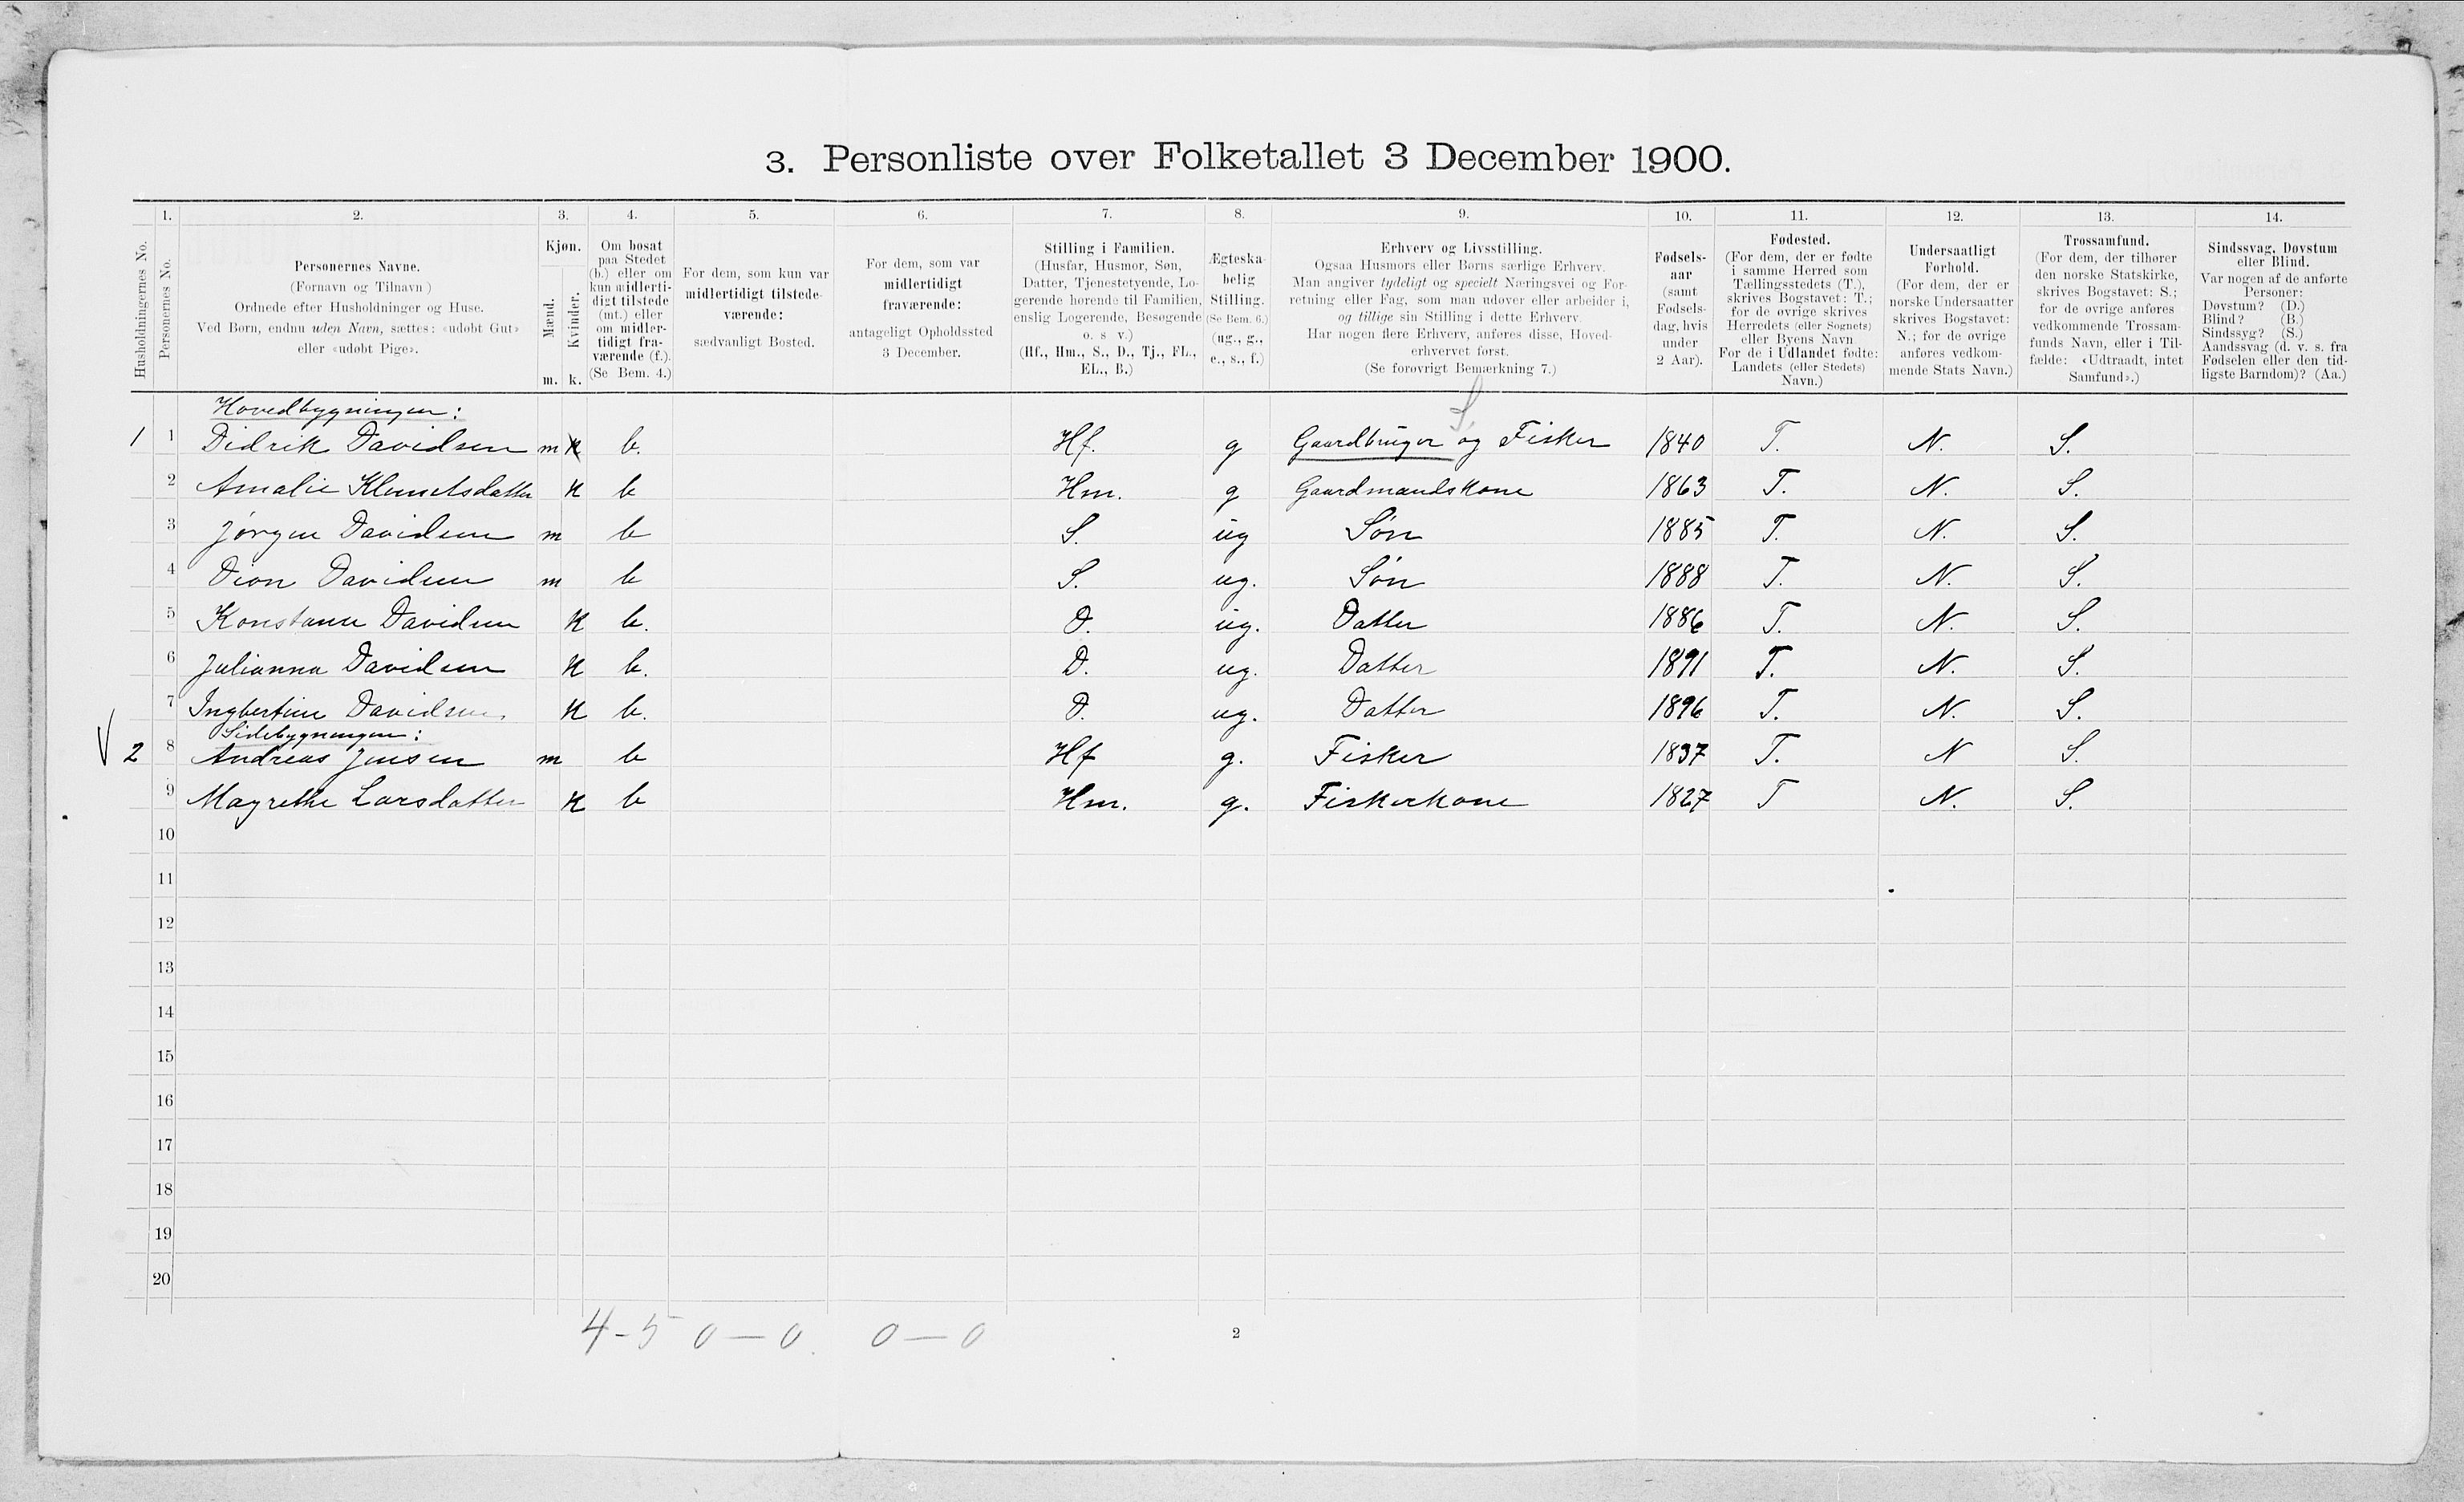 3. Personliste over Folketallet 3 December 1900.
1. 2. 3. 4. 5. 6. 7. 8. 9. 10. 11. 12. 13. 14.
Husholdningernes No.
Personernes No.
Personernes Navne.
(Fornavn og Tilnavn)
Ordnede efter Husholdninger og Huse.
Ved Børn, endnu uden Navn, sættes: «udøbt Gut»
eller «udøbt Pige».
Kjøn.
Mænd.
Kvinder.
m. k.
Om bosat
paa Stedet
(b.) eller om
kun midlerti-
digt tilstede
(mt.) eller
om midler-
tidigt fra-
værende (f.).
(Se Bem. 4.)
For dem, som kun var
midlertidigt tilstede-
værende:
sædvanligt Bosted.
For dem, som var
midlertidigt
fraværende:
antageligt Opholdssted
3 December.
Stilling i Familien.
(Husfar, Husmor, Søn,
Datter, Tjenestetyende, Lo-
gerende hørende til Familien,
enslig Logerende, Besøgende
o. s v.)
(Hf., Hm., S., D., Tj., FL.,
EL., B.)
Ægteska-
belig
Stilling.
(Se Bem. 6.)
(ug., g.,
e., s., f.)
Erhverv og Livsstilling.
Ogsaa Husmors eller Børns særlige Erhverv.
Man angiver tydeligt og specielt Næringsvei og For-
retning eller Fag, som man udøver eller arbeider i,
og tillige sin Stilling i dette Erhverv.
Har nogen flere Erhverv, anføres disse, Hoved-
erhvervet først.
(Se forøvrigt Bemærkning 7.)
Fødsels-
aar
(samt
Fødsels-
dag, hvis
under
2 Aar).
Fødested.
(For dem, der er fødte
i samme Herred som
Tællingsstedets (T.),
skrives Bogstavet: T.;
for de øvrige skrives
Herredets (eller Sognets)
eller Byens Navn
For de i Udlandet fødte:
Landets (eller Stedets)
Navn.)
Undersaatligt
Forhold.
(For dem, der er
norske Undersaatter
skrives Bogstavet:
N.; for de øvrige
anføres vedkom-
mende Stats Navn.)
Trossamfund.
(For dem, der tilhører
den norske Statskirke,
skrives Bogstavet: S.;
for de øvrige anføres
vedkommende Trossam-
funds Navn, eller i Til-
fælde: «Udtraadt, intet
Samfund».)
Sindssvag, Døvstum
eller Blind.
Var nogen af de anførte
Personer:
Døvstum? (D.)
Blind? (B.)
Sindssyg? (S.)
Aandssvag (d. v. s. fra
Fødselen eller den tid-
ligste Barndom)? (Aa.)
Hovedbygningen:
1 1 Didrik Davidsen m k b. Hf. g Gaardbruger og Fisker 1840 T. N. S.
2 Amalie Klemetsdatter k b Hm. g Gaardmandskone 1863 T. N. S.
3 Jørgen Davidsen m b S. ug Søn 1885 T. N. S.
4 Dion Davidsen m b S. ug. Søn 1888 T. N. S.
5 Konstanse Davidsen k b. D. ug. Datter 1886 T. N. S.
6 Julianna Davidsen k b. D. ug. Datter 1891 T. N. S.
7 Ingbertine Davidsen. k b. D. ug. Datter 1896 T. N. S.
Sidebygningen:
2 8 Andreas Jensen m b Hf g. Fisker 1837 T. N S.
9 Magrethe Larsdatter k b Hm. g. Fiskerkone 1827 T N. S.
10
11
12
13
14
15
16
17
18
19
20
4-5 0-0. 0-0
2